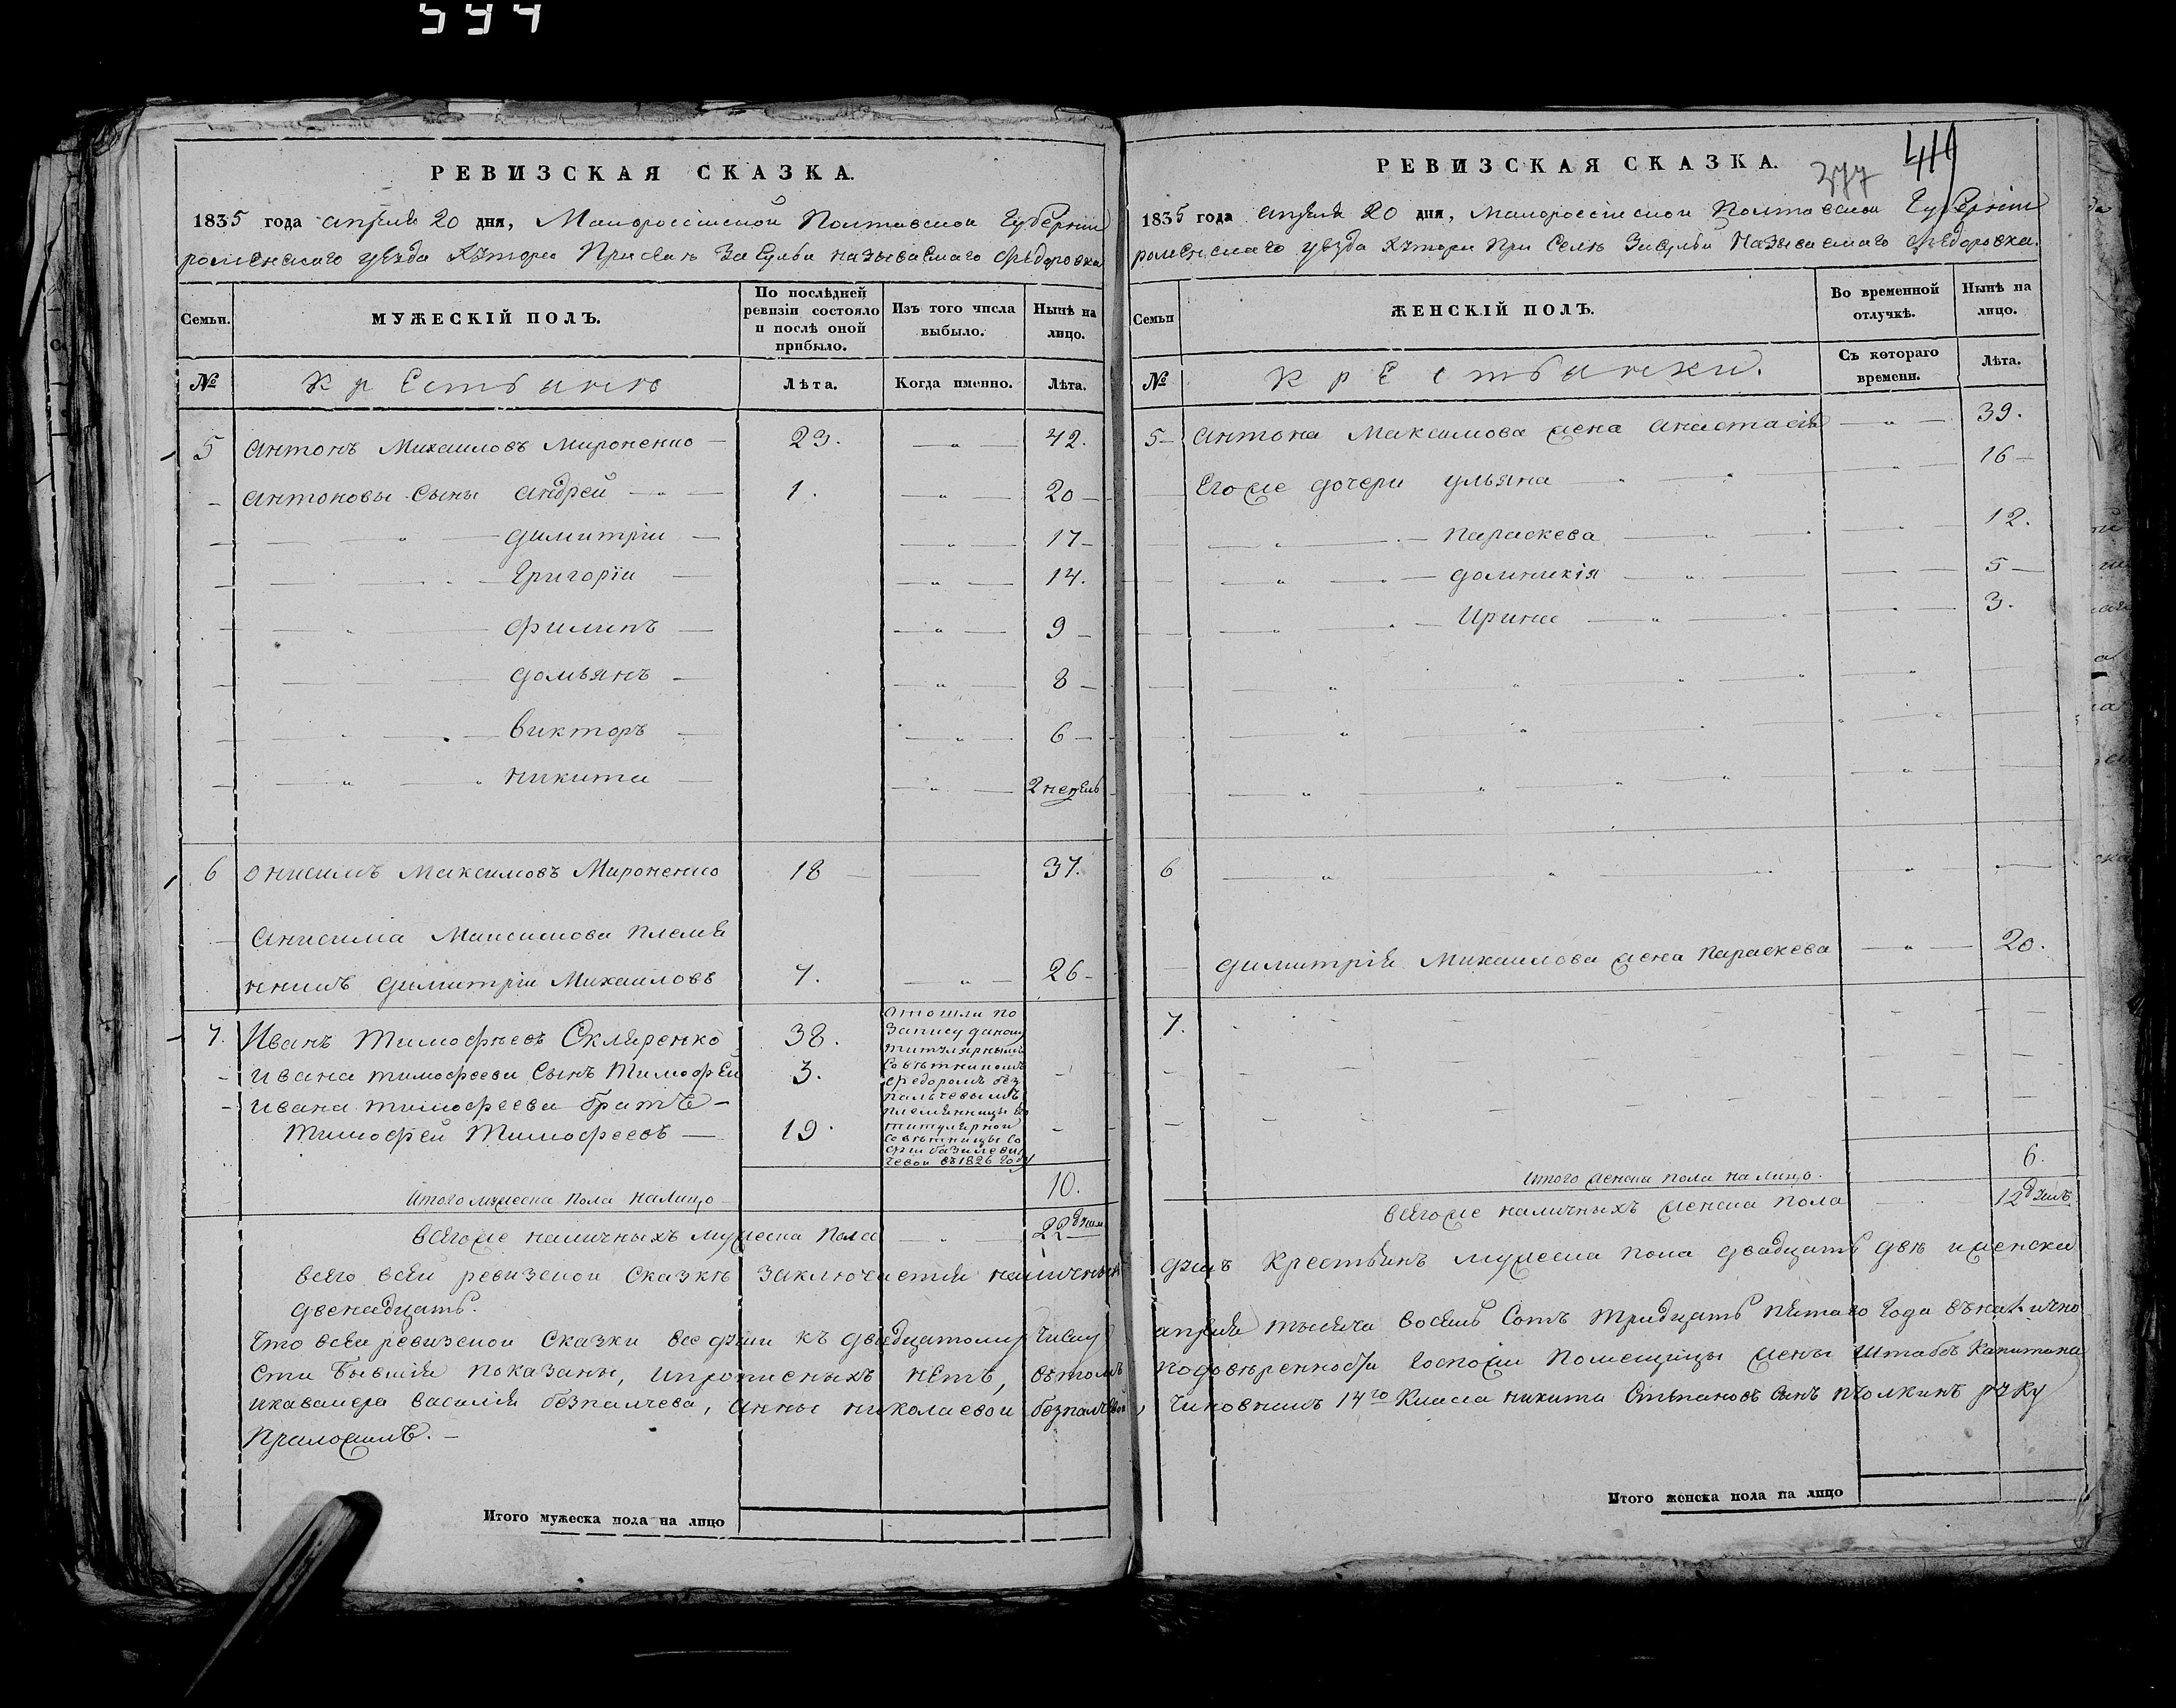 544
РЕВИЗСКАЯ СКАЗКА.
1835 года апреля 20 дня, Малороссійской Полтавской Губерніи
роменскаго уезда Хутора При селе Засулья называемаго Федоровка
Семьи.
МУЖЕСКІЙ ПОЛЪ.
По послѣдней ревизіи состояло и послѣ оной прибыло.
Изъ того числа выбыло.
Нынѣ на лицо.
№
Крестьяне
Лѣта.
Когда именно.
Лѣта.
5 Антонъ Михаиловъ Мироненко 23. 42.
Антоновы Сыны Андрей 1. 20
Димитрій 17
Григорій 14.
Филипъ 9
Домьянъ 8
Викторъ 6
Никита 2 недель
6 Онисимъ Максимовъ Мироненко 18 37.
Анисима Максимова племя
нникъ Димитрій Михаиловъ 7. 26
7. Иванъ Тимофѣевъ Скляренко 38.
Ивана Тимофеева Сынъ Тимофей 3.
Ивана Тимофеева братъ
Тимофей Тимофеевъ 19.
отошли по
запису даному
титулярнымъ
Советникомъ
Федоромъ без
пальчевымъ
племянницы его
титулярной
Советницы Со
фіи базилеви
чевой въ 1826 году
Итого мужеска пола налицо 10.
Всегоже наличныхъ мужеска пола 22 души
Всего всей ревизской Сказке заключается наличныхъ
двенадцать.
Что всей ревизской Сказки все души къ двадцатому числу
сти бывшія показаны, и прописныхъ нетъ, въ томъ
икавалера Василія безпалчева, Анны Николаевой безпалчевой,
руку Приложилъ.
Итого мужеска пола на лицо
РЕВИЗСКАЯ СКАЗКА.
377 419
1835 года апреля 20 дня, Малороссійской Полтавской Губерніи
роменскаго уезда Хутора При Селе Засулья Называемаго Федоровка.
Семьи
ЖЕНСКІЙ ПОЛЪ.
Во временной отлучкѣ.
Нынѣ на лицо.
№
Крестьянки.
Съ котораго времени.
Лѣта.
5 Антона Максимова жена Анастасія 39.
Его же дочери Ульяна 16
Параскева 12.
Домникія 5
Ирина 3.
6
Димитрія Михаилова жена Параскева 20.
7.
Итого женска пола налицо. 6.
Всегоже наличныхъ женска пола 12 душъ
душъ Крестьянъ мужеска пола двадцать две и женска
апреля тысяча восемь Сотъ тридцать пятаго Года въ налично
по доверенности Госпожи Помещицы жены штабсъ Капитана
Чиновникъ 14го Класса Никита Степановъ Сынъ руку
Итого женска пола на лицо